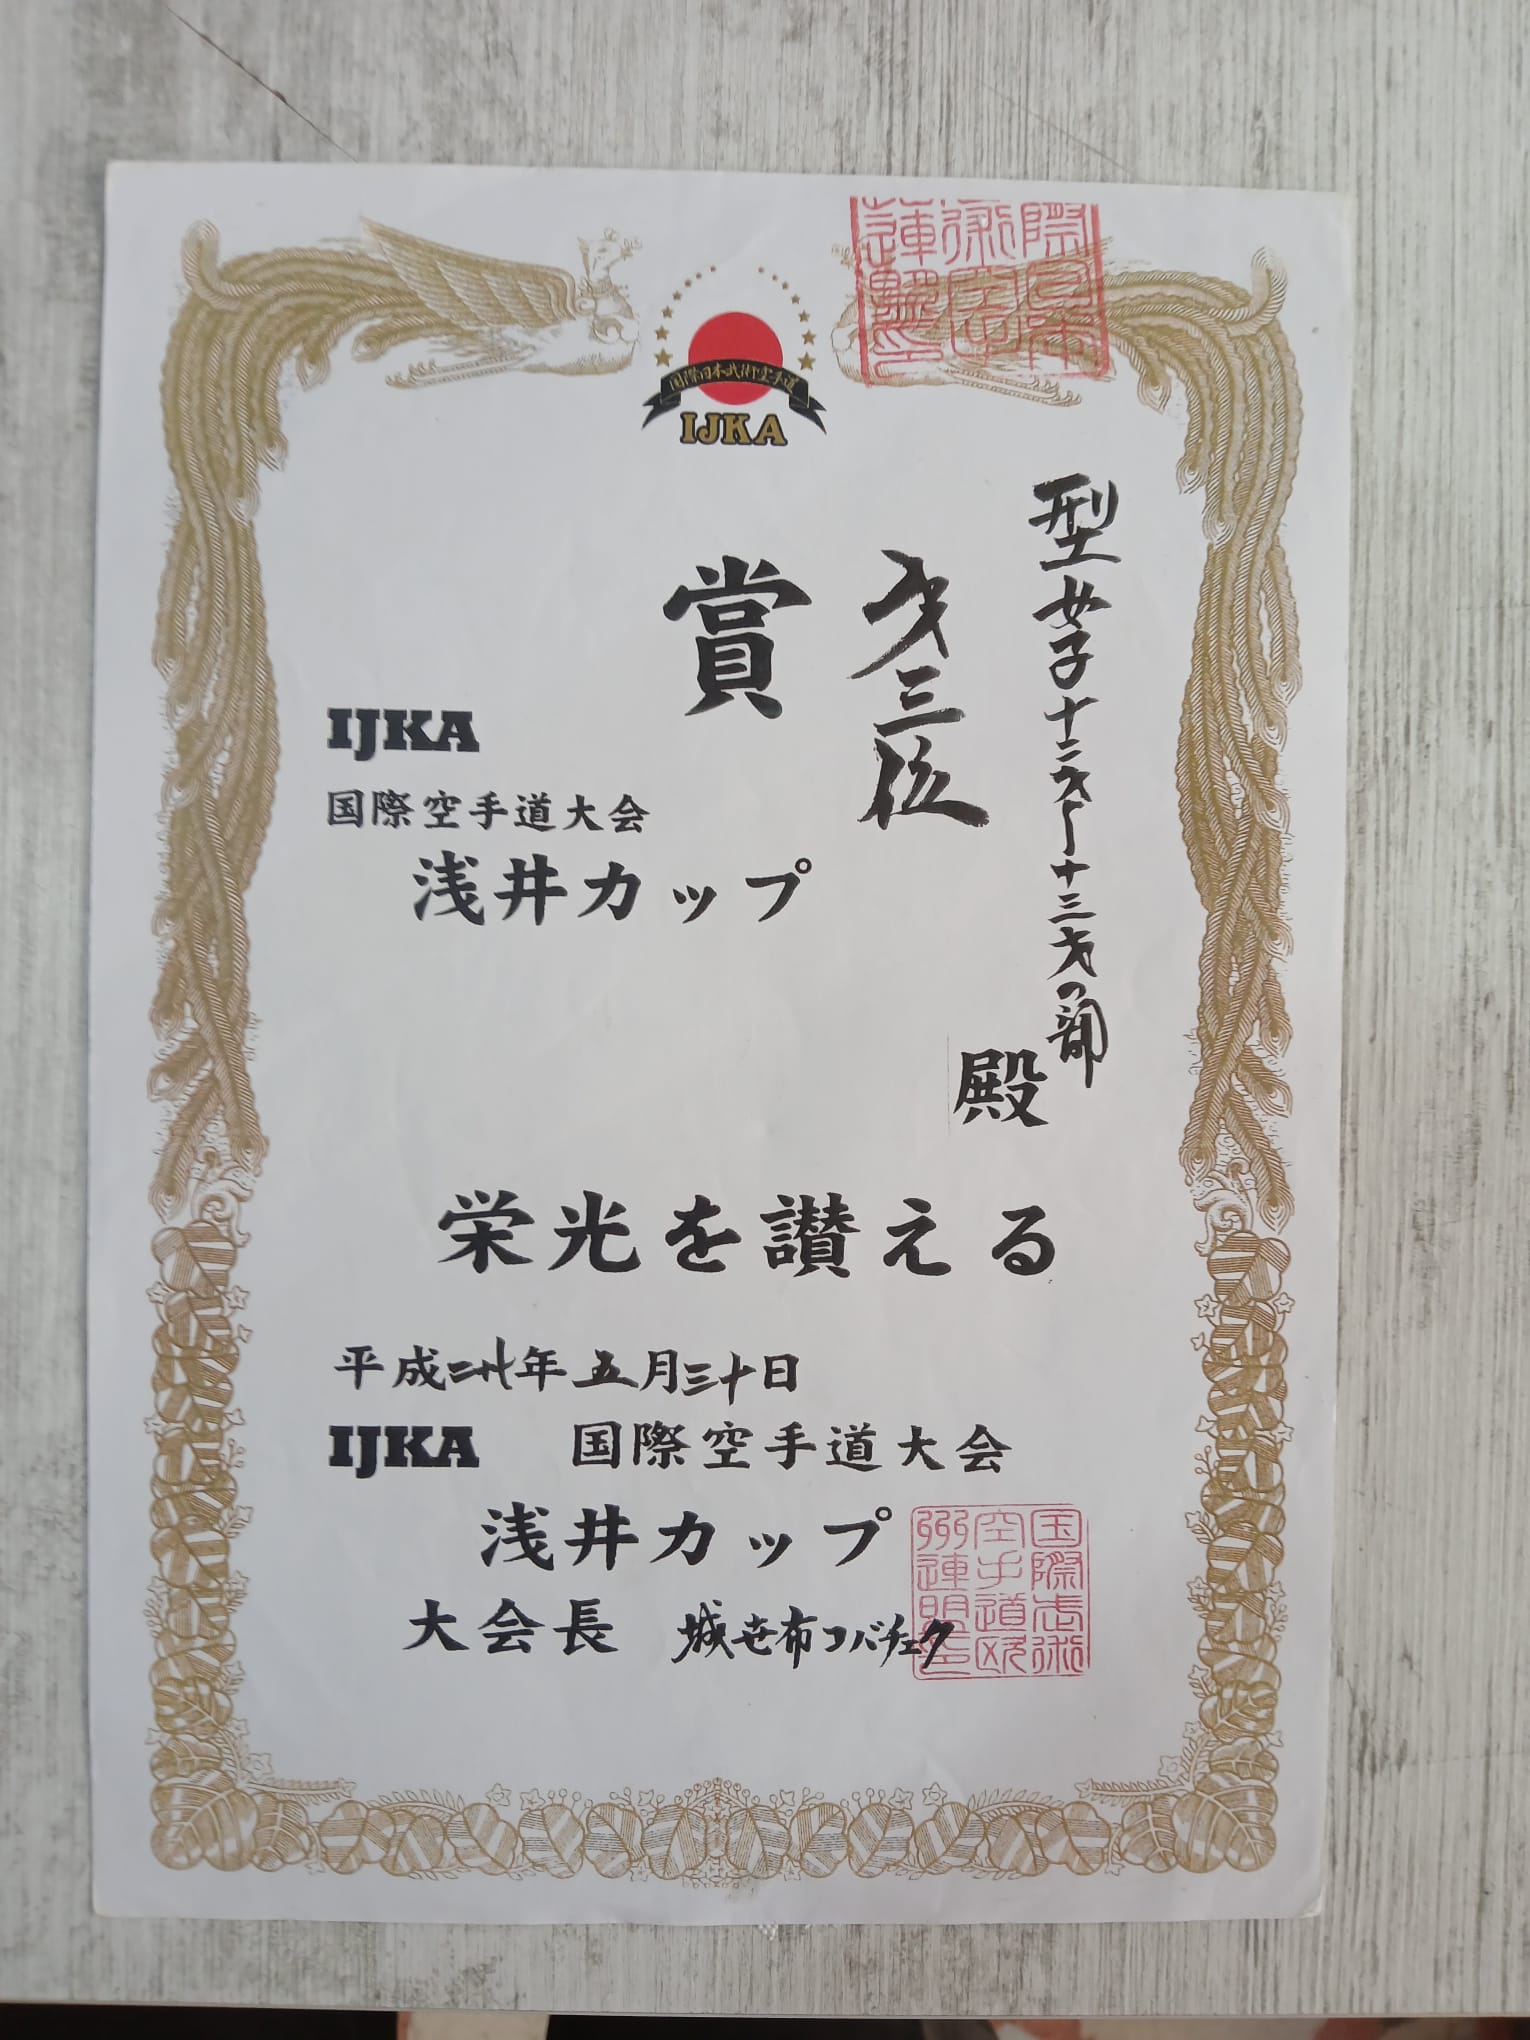 国際日本武術空手道
IJKA
型女子十二才〜十三才の部
才三位
賞
IJKA
国際空手道大会
浅井カップ
殿
栄光を讃える
平成二十七年五月三十日
IJKA 国際空手道大会
浅井カップ
大会長 城世布コバチェク